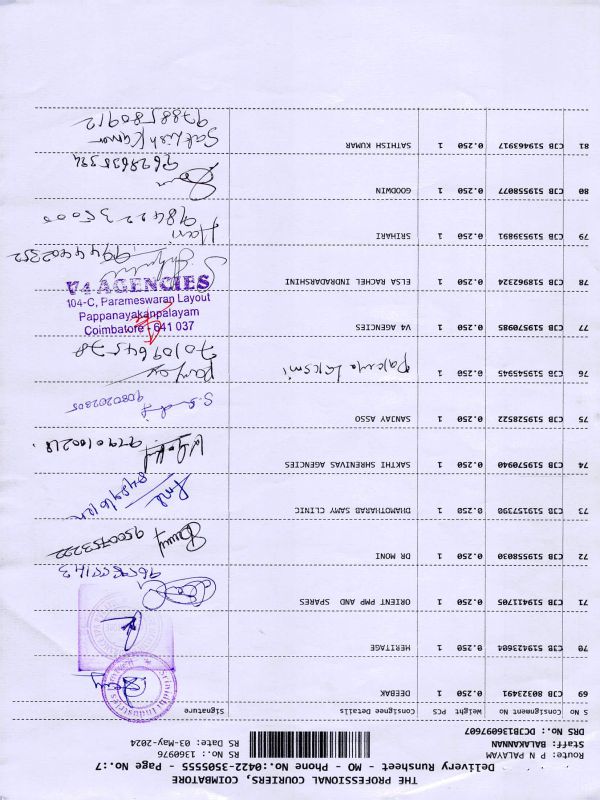 THE PROFESSIONAL COURIERS, COIMBATORE
Delivery Runsheet - MO - Phone No.:0422-3505555 - Page No.:7
Route: P N PALAYAM RS No.: 1360976
Staff: BALAKANNAN RS Date: 03-May-2024
DRS No.: DCJB136097607
S No Consignment No Weight PCS Consignee Details Signature
69 CJB 80323491 0.250 1 DEEBAK
70 CJB 519423604 0.250 1 HERITAGE
71 CJB 519411705 0.250 1 ORIENT PMP AND SPARES
72 CJB 519558830 0.250 1 DR MONI 9500753222
73 CJB 519157398 0.250 1 DHAMOTHARAB SAMY CLINIC
74 CJB 519570940 0.250 1 SAKTHI SHRENIVAS AGENCIES 9790100218
75 CJB 519528522 0.250 1 SANJAY ASSO 9080202805
76 CJB 519545945 0.250 1 7010964578
77 CJB 519570985 0.250 1 V4 AGENCIES
V4 AGENCIES
104-C, Parameswaran Layout
Pappanayakanpalayam
Coimbatore - 641 037
78 CJB 518962324 0.250 1 ELSA RACHEL INDRADARSHINI 9944402352
79 CJB 519539891 0.250 1 SRIHARI Hari
9842235000
80 CJB 519558077 0.250 1 GOODWIN
9628635334
81 CJB 519463917 0.250 1 SATHISH KUMAR Sathish Kumar
9788580912